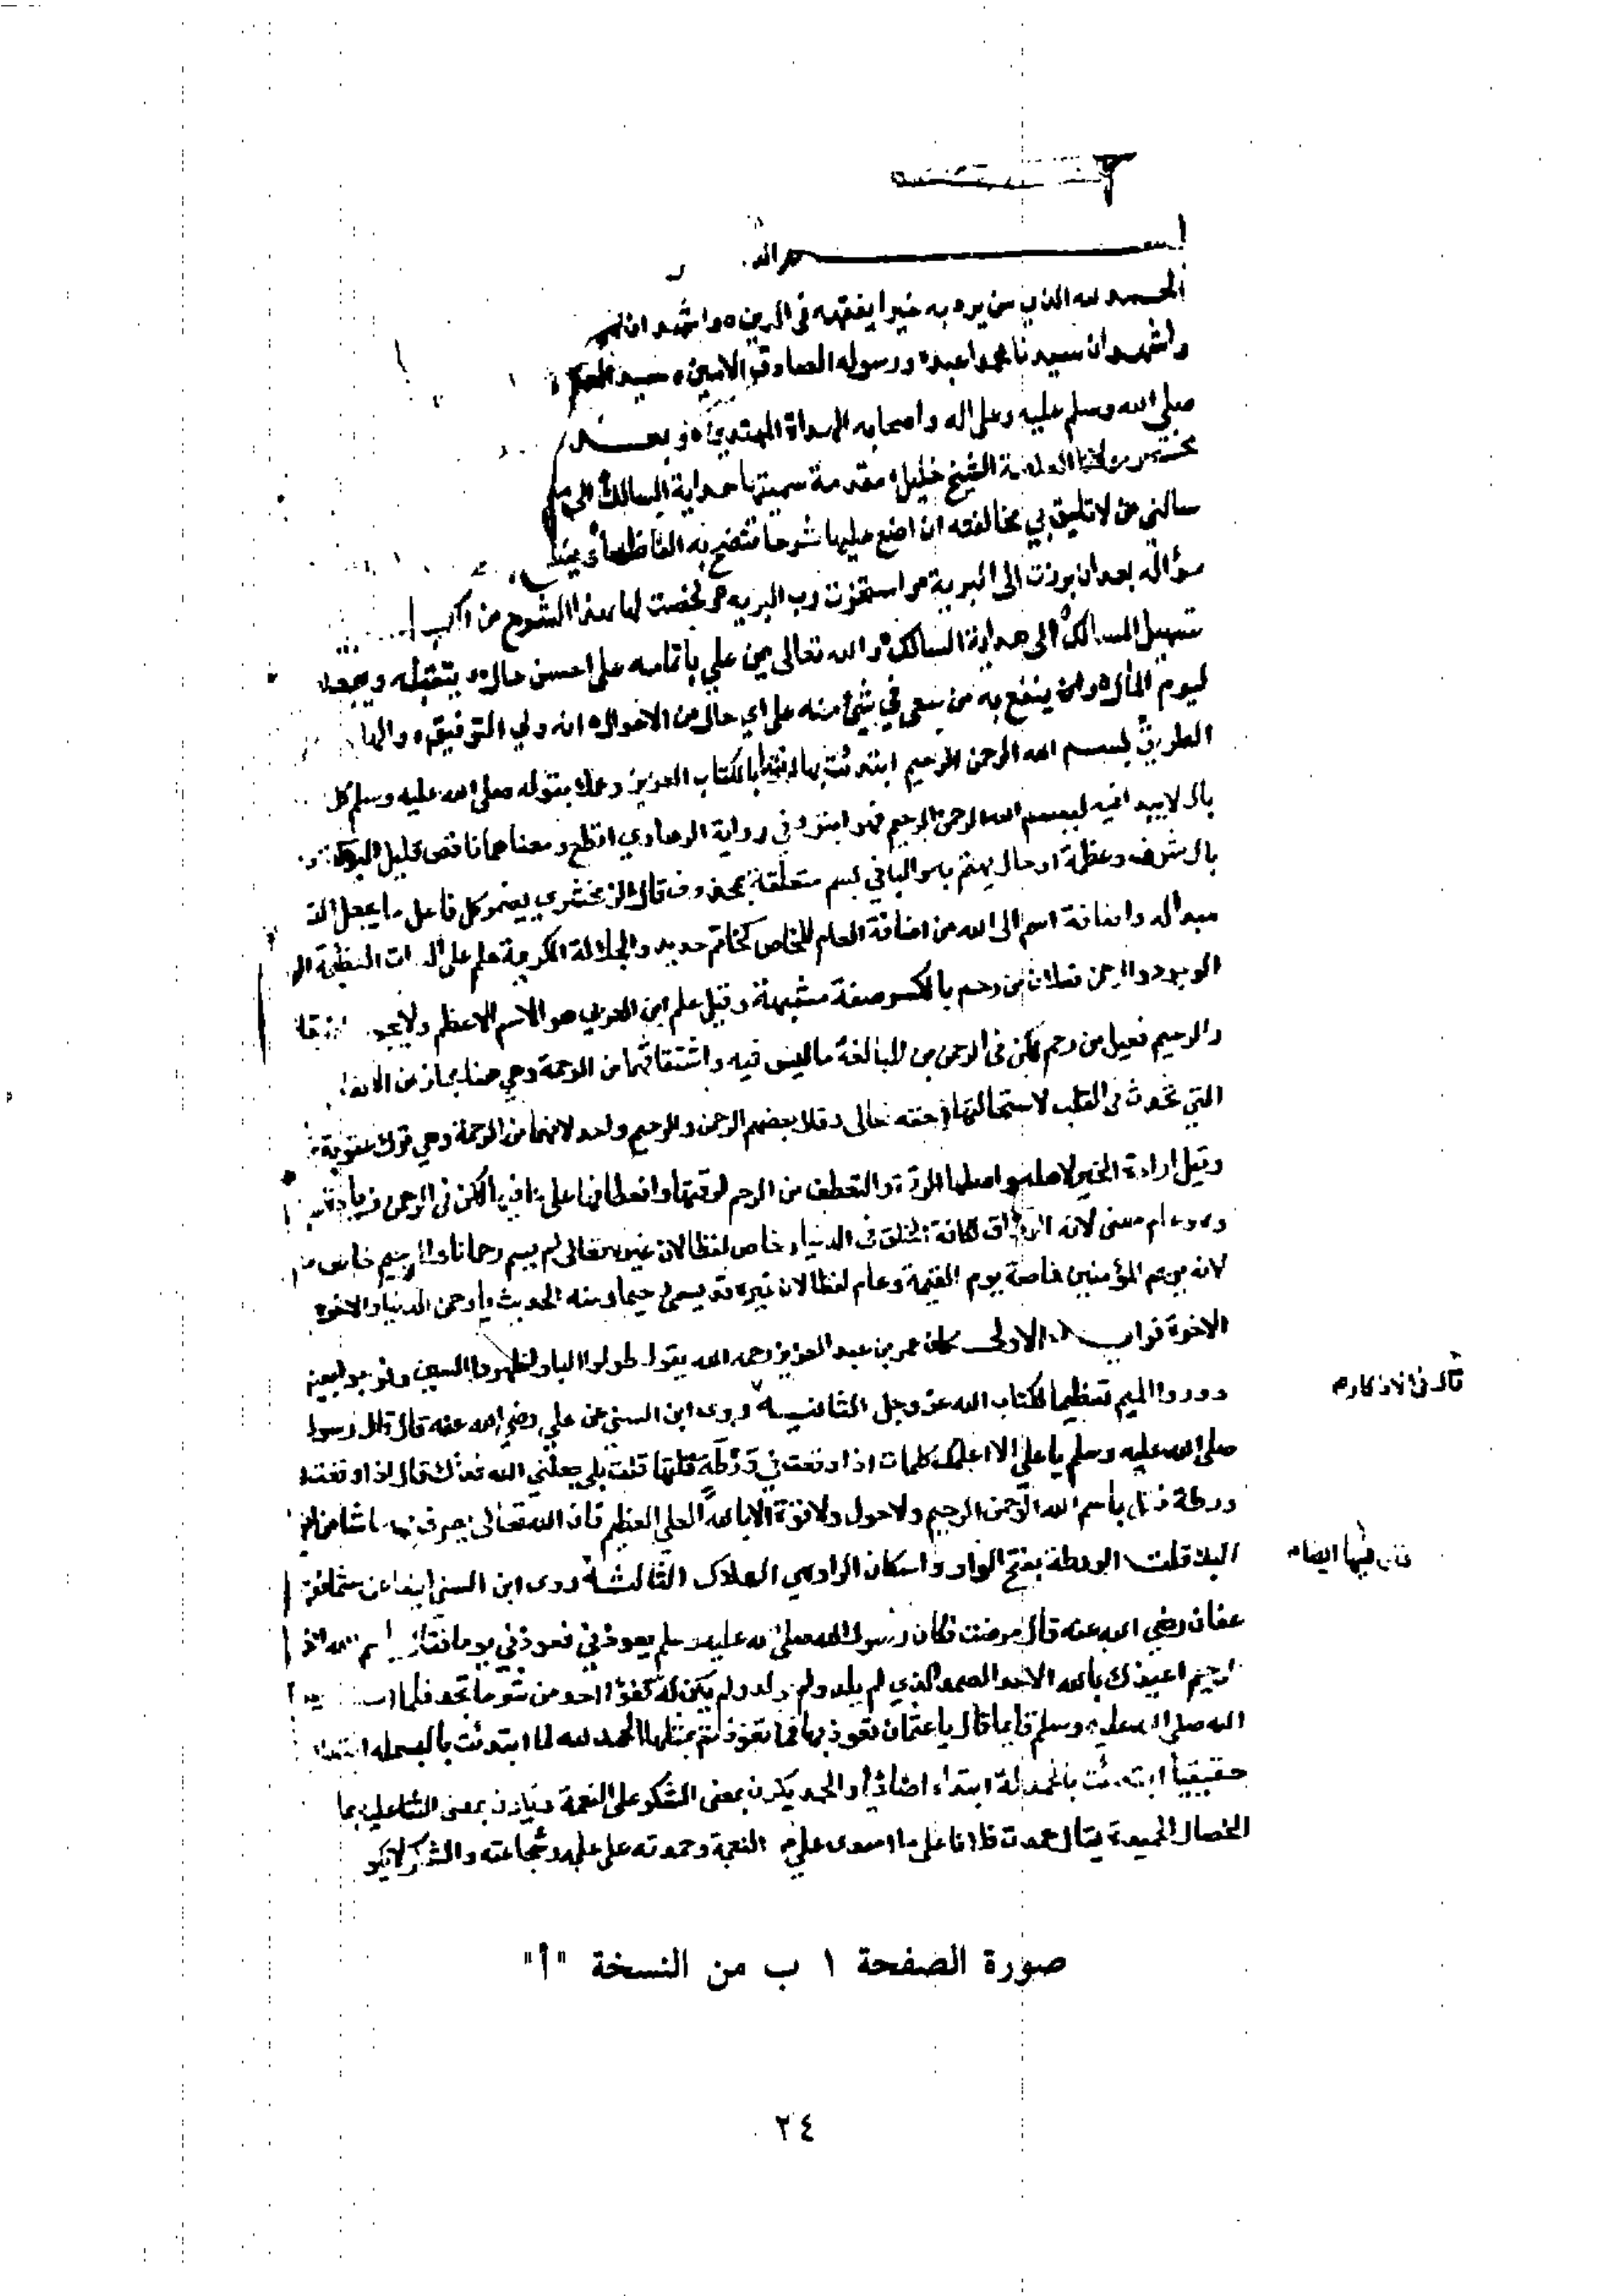 بسم الله
الحمد لله الذي من يرد به خيرا يفقهه في الدين واشهد ان
واشهد ان سيدنا محمدا عبده ورسوله الصادق الامين سيد
صلى الله وسلم عليه وعلى اله واصحابه الهداة المهتدين وبعد
مختصر مولانا العلامة الشيخ خليل مقدمة سميتها هداية السالك الى
سالني من لا تليق بي مخالفته ان اضع عليها شرحا تتضح به الفاظها
سؤاله بعد ان برزت الى البرية واستخرت رب البريه ولخصت لها هذا الشرح من
تسهيل المسالك الى هداية السالك والله تعالى يمن علي باتمامه على احسن حال ويتقبله ويجعله
ليوم المال وان ينفع به من سعى في شئ منه على اي حال من الاحوال انه ولي التوفيق
الطريق بسم الله الرحمن الرحيم ابتدئت بها اقتدا بالكتاب العزيز وعملا بقوله صلى الله عليه وسلم كل
بال لا يبدا فيه ببسم الله الرحمن الرحيم فهو ابتر وفي رواية الرهاوي اقطع ومعناهما ناقص قليل البركة
بال شرف وعظمة او حال يهتم به والبا في بسم متعلقة بمحذوف قال الزمخشري يضمر كل فاعل ما يجعل
مبدا له واضافة اسم الى الله من اضافة العام للخاص كخاتم حديد والجلالة الكريمة علم على الذات العظيمة
الوجود والرحمن فعلان من رحم بالكسر صفة مشبهة وقيل علم ابن العربي هو الاسم الاعظم ولا
والرحيم فعيل من رحم لكن في الرحمن من المبالغة ما ليس فيه واشتقاقهما من الرحمة وهي هنا مجاز عن
التي تحدث في القلب لاستحالتها في حقه تعالى وقال بعضهم الرحمن والرحيم واحد لانهما من الرحمة وهي ترك عقوبة
وقيل ارادة الخير لاهله واصلها الرقة والتعطف من الرحم لرقتها وانعطافها على ما فيها لكن في الرحمن زيادة
وهو عام معنى لانه الرزاق لكافة الخلق في الدنيا وخاص لفظا لان غيره تعالى لم يسم رحمانا والرحيم خاص
لانه يرحم المؤمنين خاصة يوم القيمة وعام لفظا لان غيره قد يسمى رحيما ومنه الحديث يا رحمن الدنيا والاخرة
الاخرة فوايد الاولى كان عمر بن عبد العزيز رحمه الله يقول طولوا البا واظهروا السين وفرجوا بينهما
ودوروا الميم تعظيما لكتاب الله عز وجل الثانيه وروى ابن السني عن علي رضي الله عنه قال قال رسول
قال في الاذكار
صلى الله عليه وسلم يا علي الا اعلمك كلمات اذا وقعت في ورطة قلتها قلت بلى جعلني الله فداك قال اذا وقعت
ورطة فقل باسم الله الرحمن الرحيم ولا حول ولا قوة الا بالله العلي العظيم فان الله تعالى يصرف بها ما شا من
البلا قلت الورطة بفتح الواو واسكان الرا وهي الهلاك الثالثة روى ابن السني ايضا عن عثمان
فيها ايضا
عفان رضي الله عنه قال مرضت فكان رسول الله صلى الله عليه وسلم يعوذني فعوذني يوما فقال بسم الله
الرحيم اعيذك بالله الاحد الصمد الذي لم يلد ولم يولد ولم يكن له كفوا احد من شر ما تجد فلما
الله صلى الله عليه وسلم قايما قال يا عثمان تعوذ بها فما تعوذتم بمثلها الحمد لله لما ابتدئت بالبسملة ابتداء
حقيقيا ابتدئت بالحمدلة ابتداء اضافيا والحمد يكون بمعنى الشكر على النعمة ويكون بمعنى الثنا عليه بما
الخصال الحميدة يقال حمدت فلانا على ما اسدى علي من النعمة وحمدته على علمه وشجاعته والشكر لا يكون
صورة الصفحة ١ ب من النسخة "أ"
٢٤